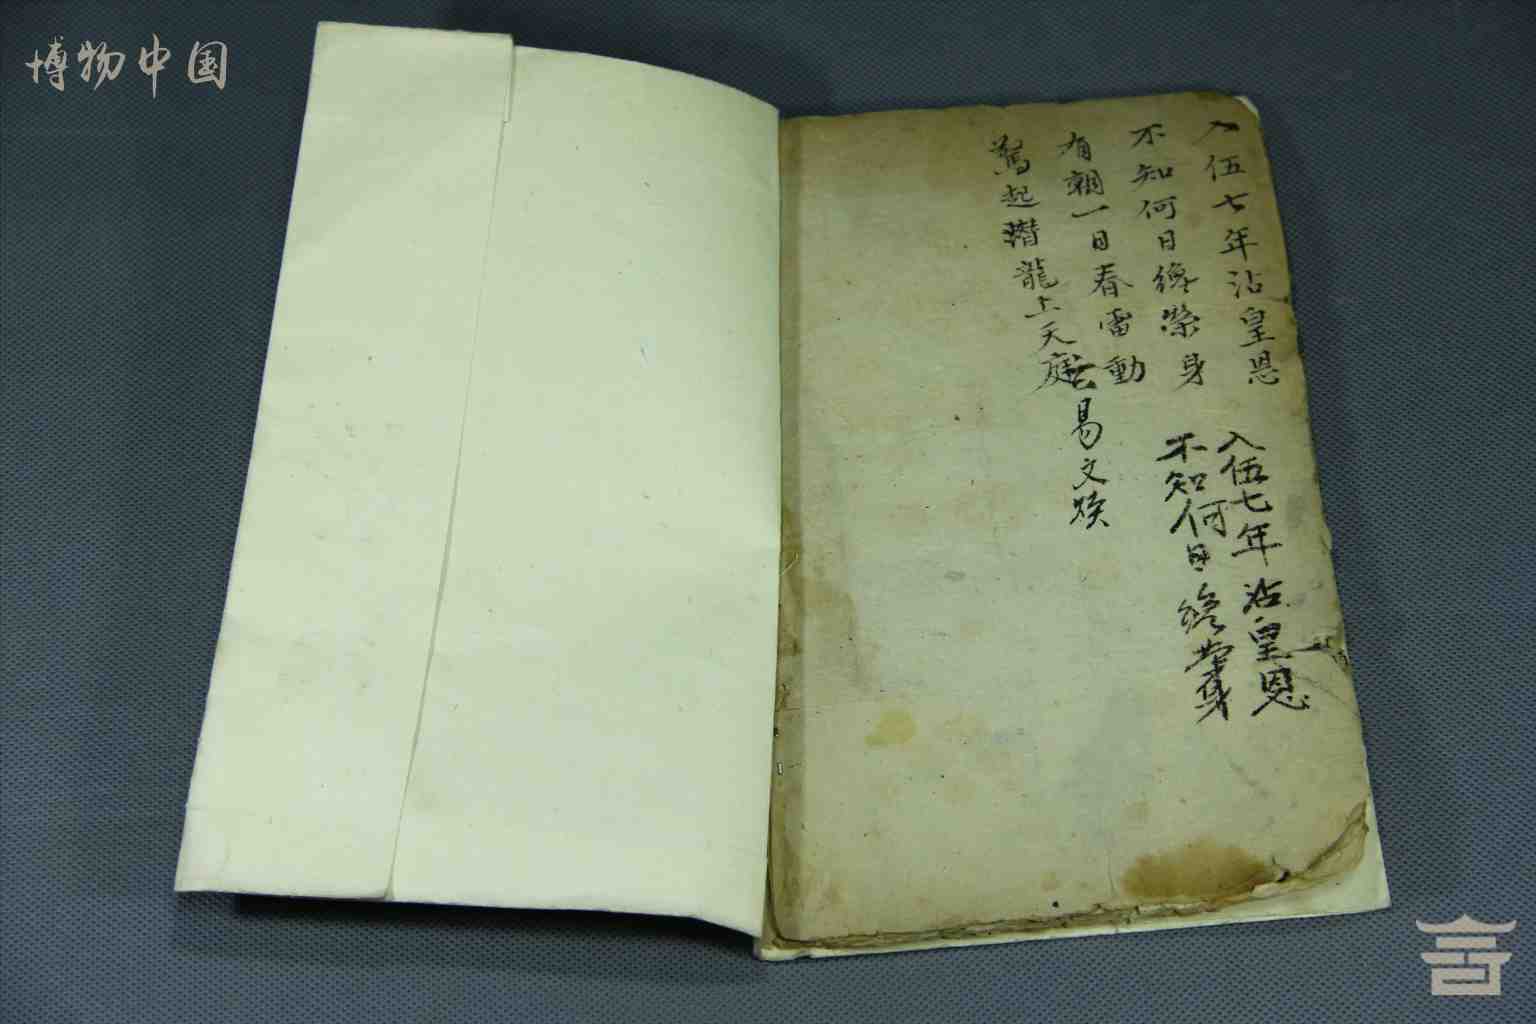 博物中国
入伍七年沾皇恩
不知何日終榮身
有朝一日春雷動
驚起潛龍上天庭
易文焕
入伍七年沾皇恩
不知何日終榮身